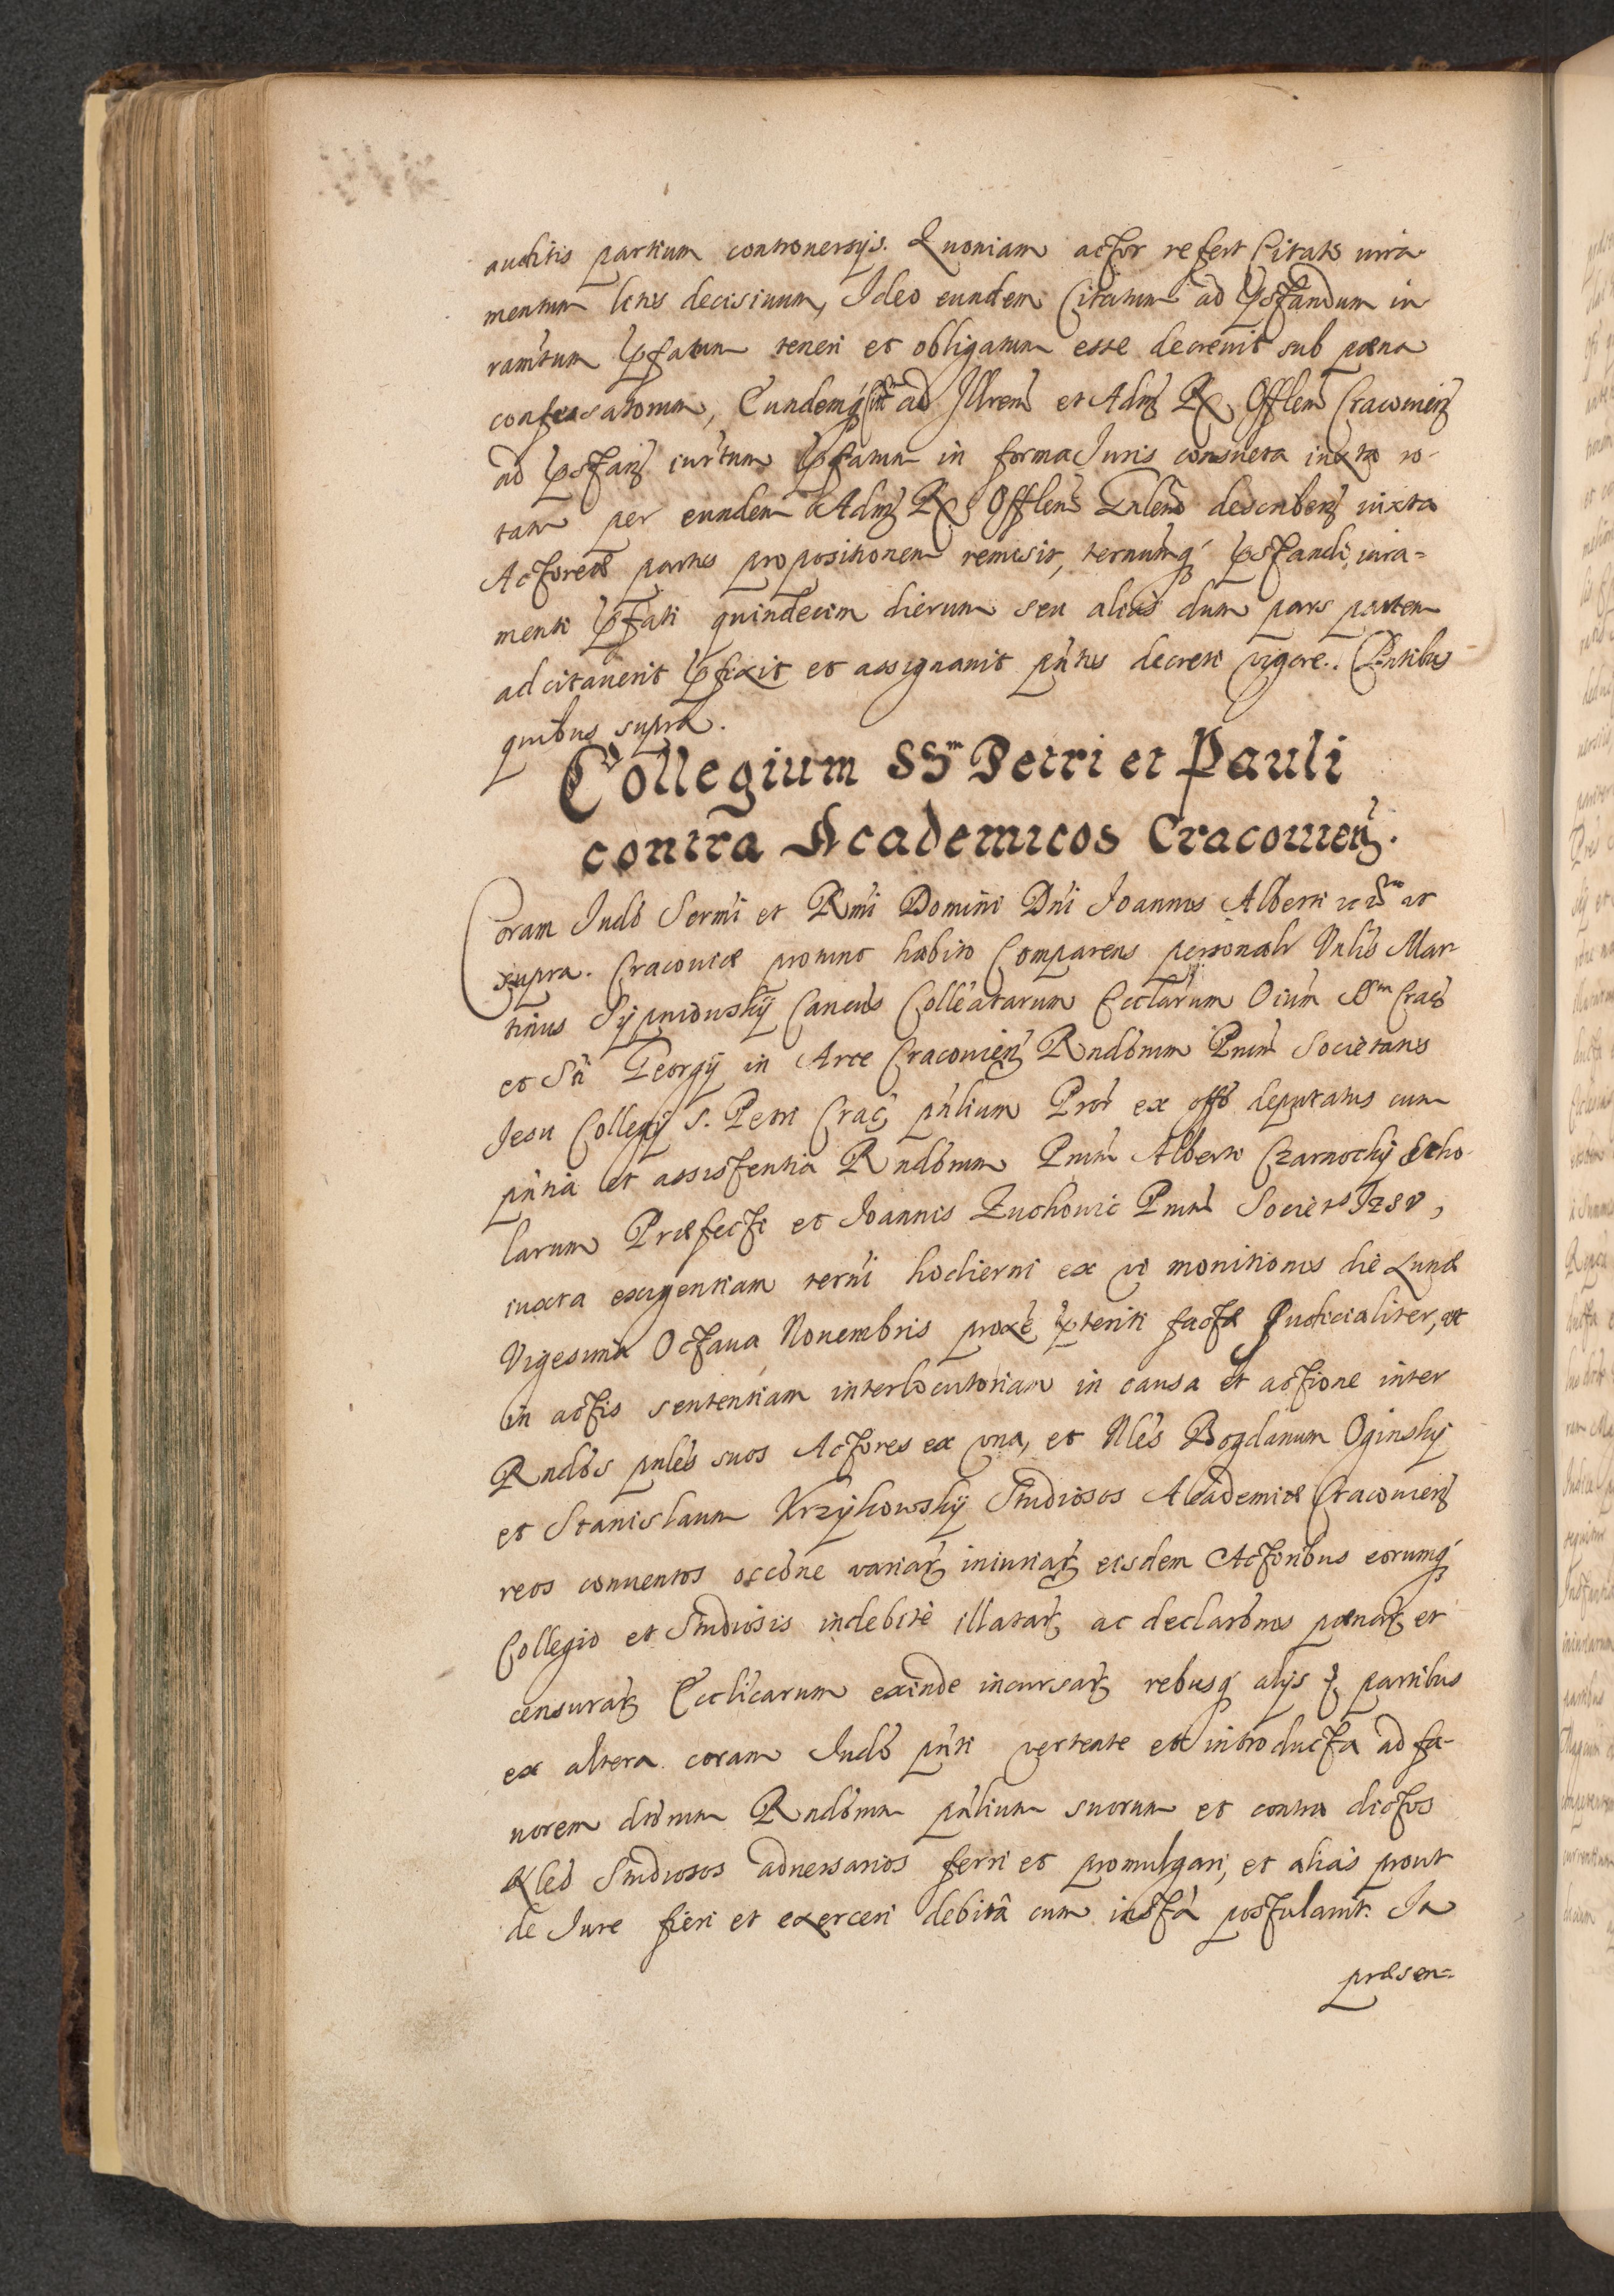 auditis partium controuersijs. Quoniam actor refert Citato iura
mentum litis decisiuum, Ideo eundem Citatum ad pstandum iu
ramtum pfatum teneri et obligatum esse decreuit sub pœna
confessatorum, Eundemq Citm ad Illrem et Adm R. Offlem Cracouien
ad pstan iurtum pfatum in forma Iuris consueta iuxta ro-
tam per eundem Adm R. Offlem Gnlem describen iuxta
Actoreæ partis propositionem remisit, ternumq pstandi iura-
menti pfati quindecim dierum seu alias dum pars partem
adcitauerit pfixit et assignauit pntis decreti vigore. Pntibus
quibus supra.
Collegium SSm Petri et Pauli
contra Academicos Cracouien.
Coram Iudō Sermi et Rmi Domini Dni Ioannis Alberti ut
supra. Cracouiæ protunc habito Comparens personalr Vnlis Mar-
tinus Sypniowskij Cancus Colleatarum Ecclärum Oium SSm Crac
et Sti Georgij in Arce Cracouien Rndorum Prum Societatis
Iesu Collegij S. Petri Crac pnlium Prōr ex offō deputatus cum
pntia et assistentia Rndorum Prum Alberti Czarnockij Scho-
larum Præfecti et Ioannis Zuchouic Prum Societis Iesv,
iuxta exigentiam terni hodierni ex vi monitionis die Lunæ
Vigesima Octaua Nouembris proxe pteriti factæ Iudicialiter, et
in actis sententiam interlocutoriam in causa et actione inter
Rndos pnles suos Actores ex vna, et Nles Bogdanum Oginskij
et Stanislaum Krzykowskij Studiosos Academiæ Cracouien
reos conuentos occōne variar iniuriar eisdem Actoribus eorumq
Collegio et Studiosis indebitè illatar ac declarōnis pœnar et
censurar Ecclicarum exinde incursar rebusq alijs partibus
ex altera coram Iudō pnti vertente et introducta ad fa-
uorem dtorum Rndorum pnlium suorum et contra dictos
Nles Studiosos aduersarios ferri et promulgari, et alias prout
de Iure fieri et exerceri debitâ cum instâ postulauit. In
præsen=